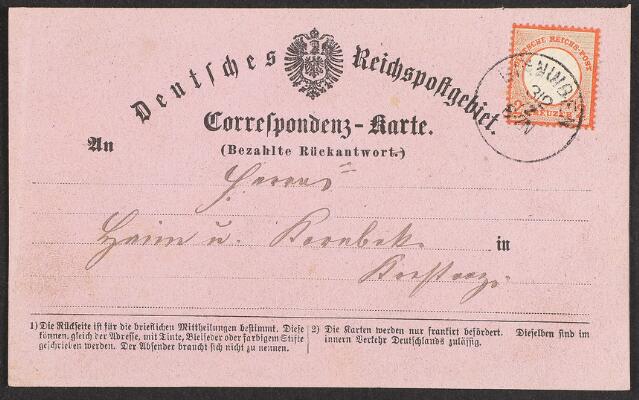 Deutsches Reichspostgebiet.
Correspondenz-Karte.
(Bezahlte Rückantwort.)
An
Herren
Haim u.
in
Konstanz.
1) Die Rückseite ist für die brieflichen Mittheilungen bestimmt. Diese
können, gleich der Adresse, mit Tinte, Bleifeder oder farbigem Stifte
geschrieben werden. Der Absender braucht sich nicht zu nennen.
2) Die Karten werden nur frankirt befördert. Dieselben sind im
innern Verkehr Deutschlands zulässig.
REICHS-POST
KREUZER